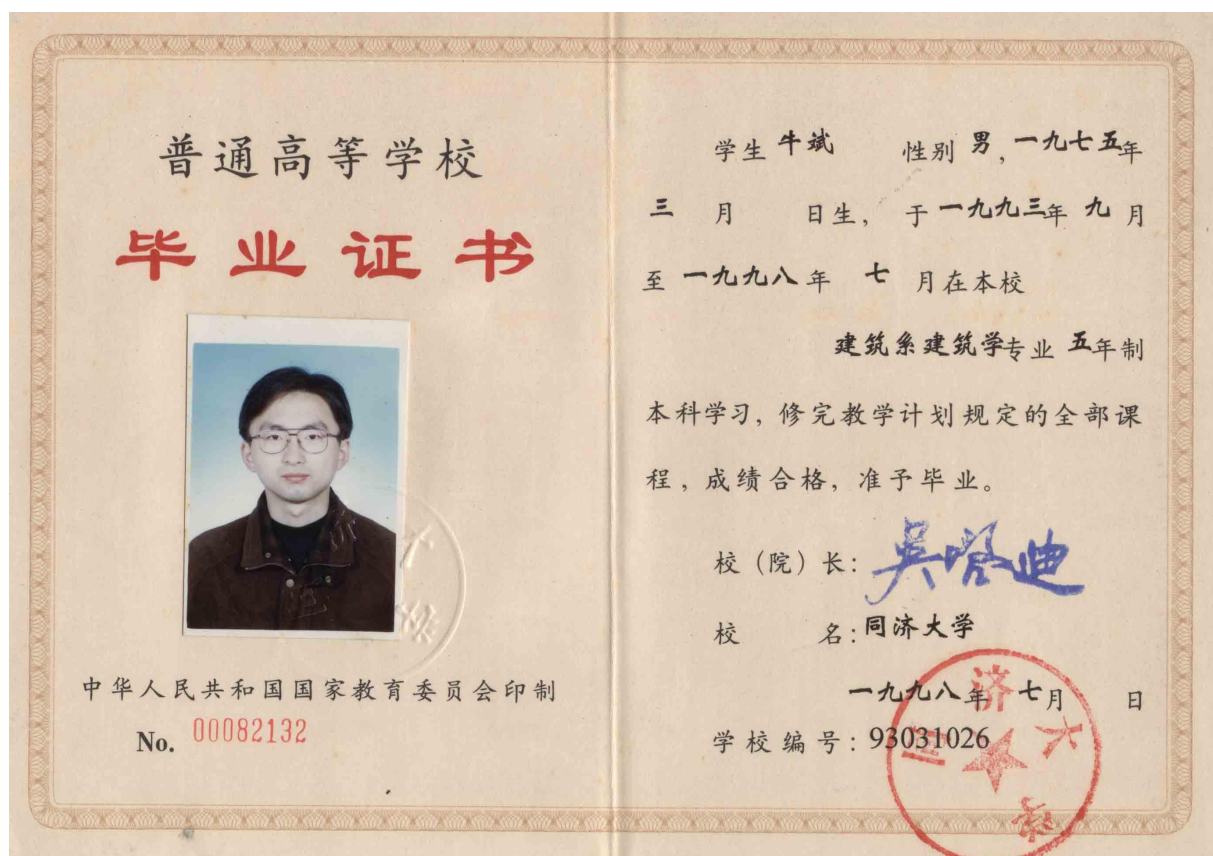 普通高等学校
毕业证书
中华人民共和国国家教育委员会印制
No. 00082132
学生 牛斌 性别 男, 一九七五年
三 月 日生, 于 一九九三年 九 月
至 一九九八 年 七 月在本校
建筑系建筑学专业 五年制
本科学习, 修完教学计划规定的全部课
程, 成绩合格, 准予毕业。
校(院)长: 吴启迪
校 名: 同济大学
一九九八年 七月 日
学校编号: 93031026
同济大学